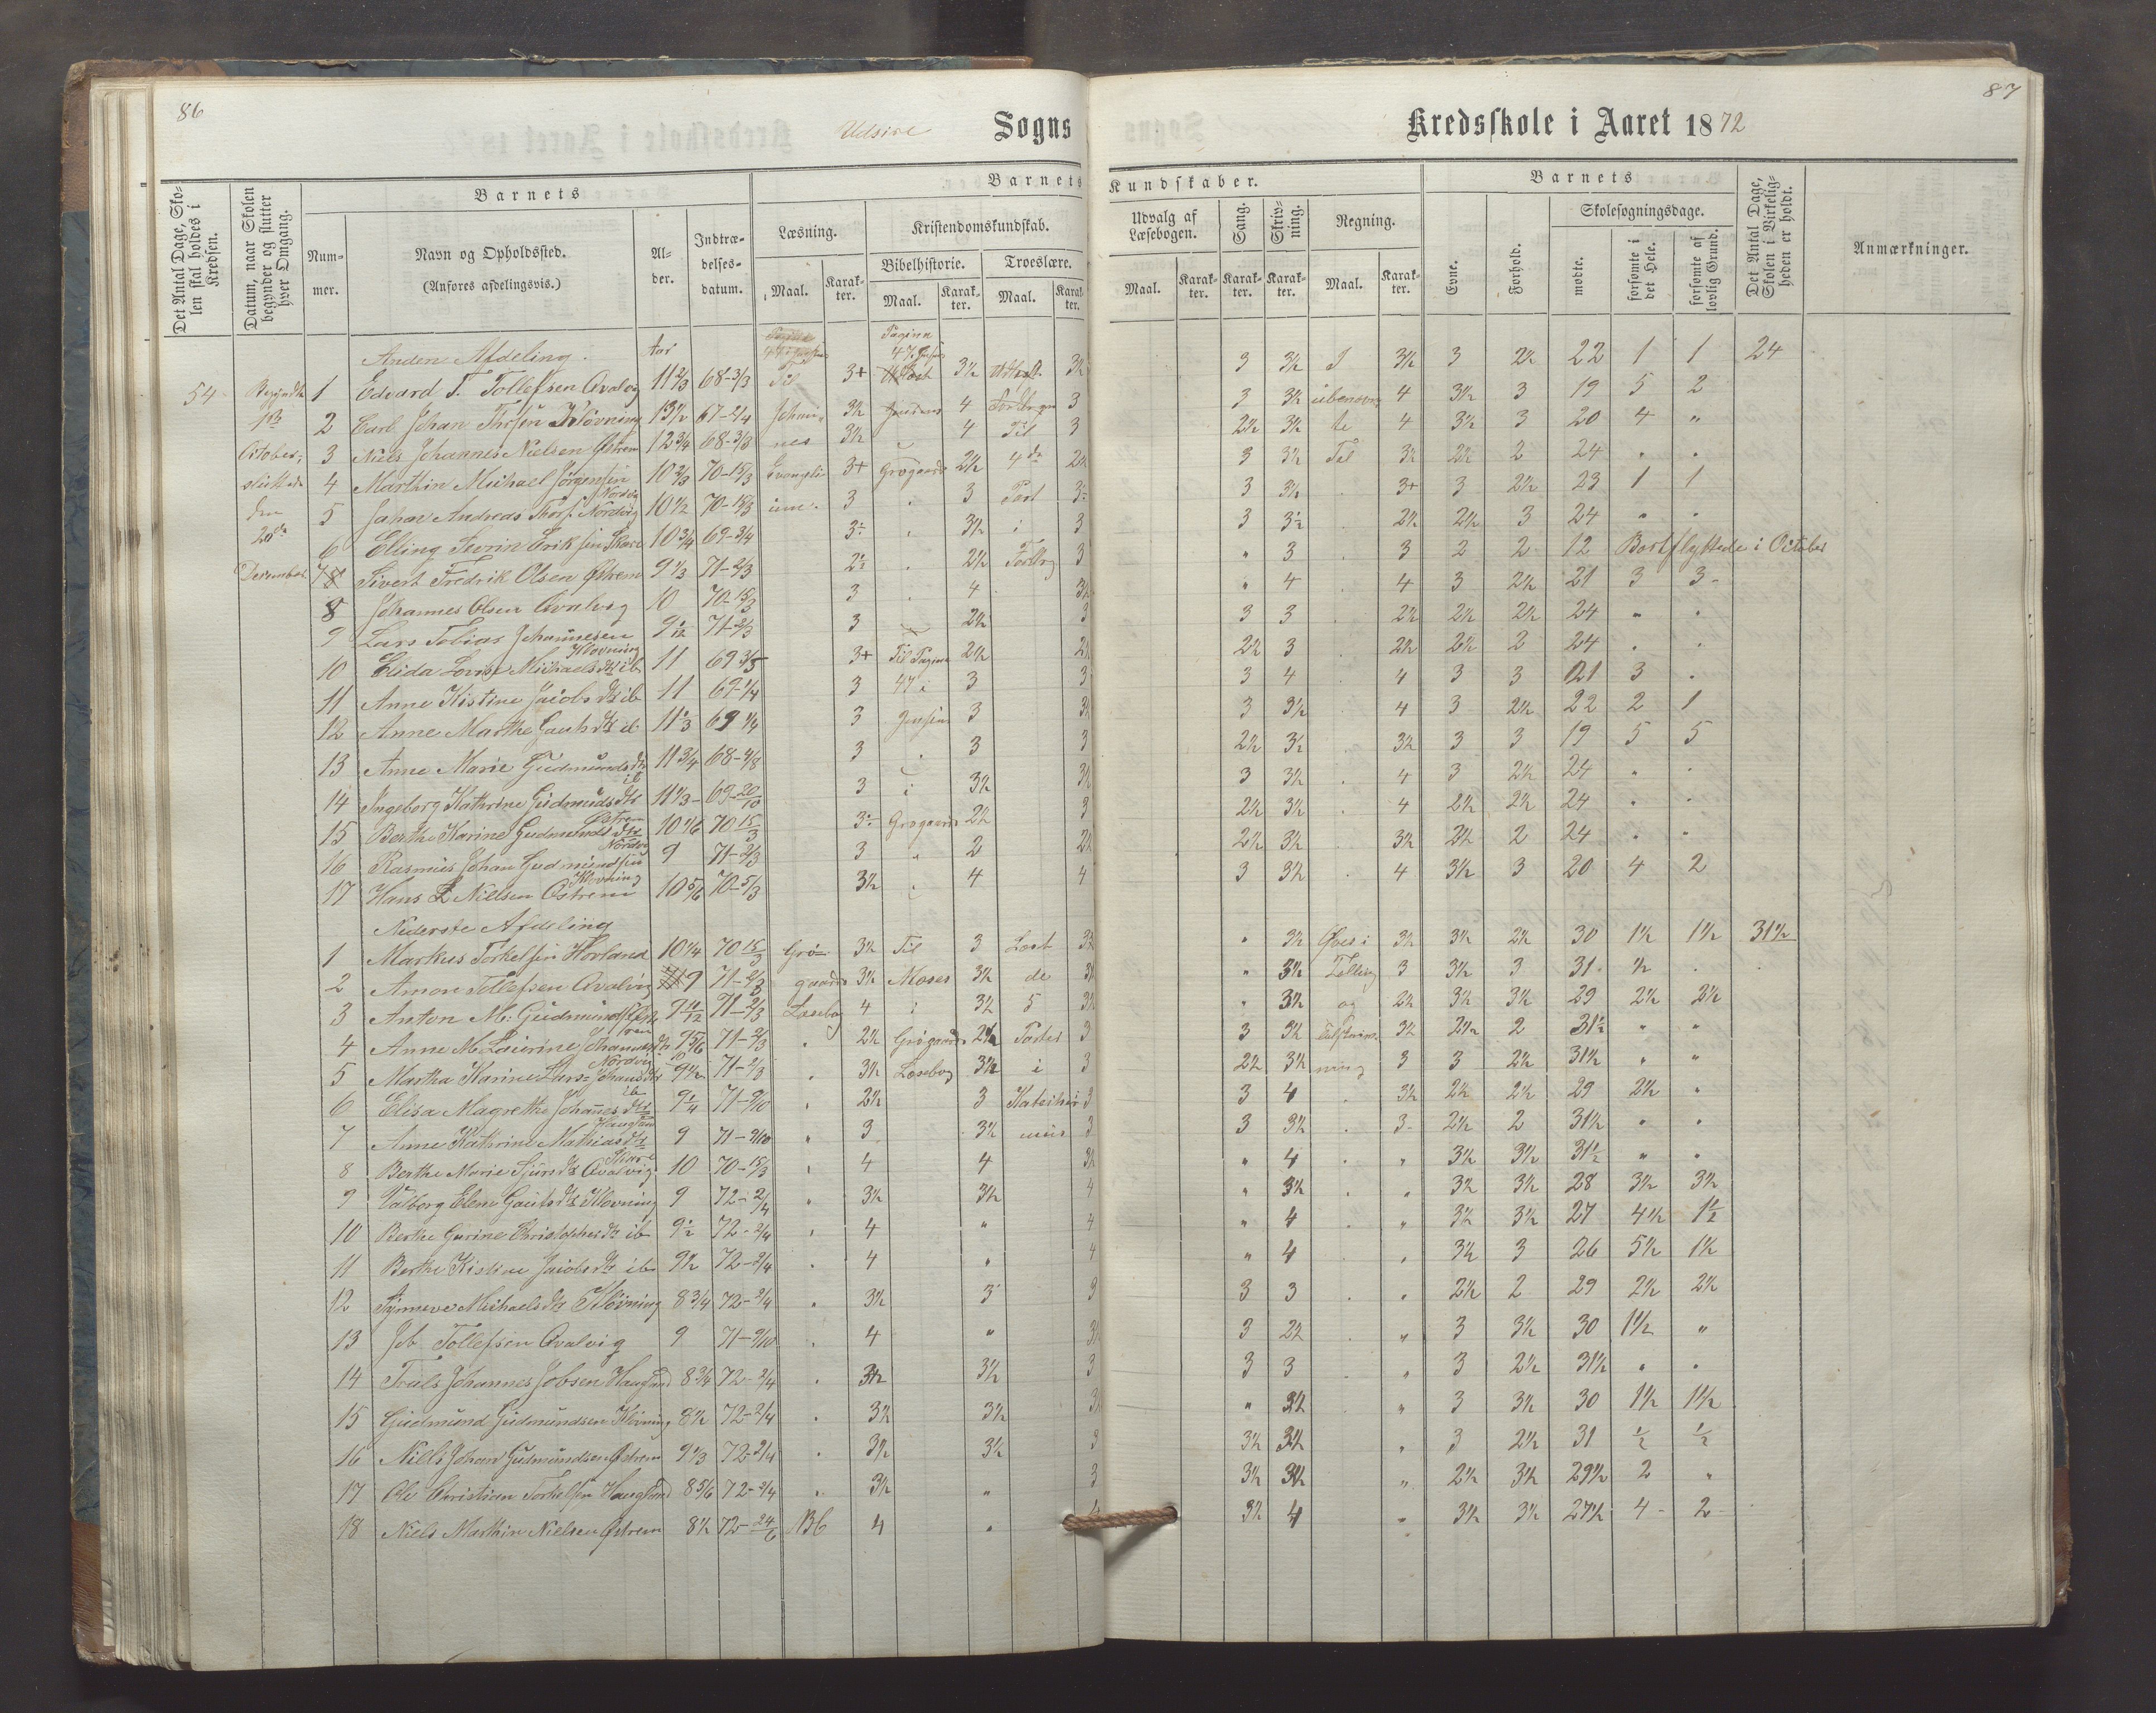 86
Udsire Sogns
Kredsskole i Aaret 1872
87
Det Antal Dage, Skolen skal holdes i Kredsen.
Datum, naar Skolen begynder og slutter hver Omgang.
Barnets
Nummer.
Navn og Opholdssted.
(Anføres afdelingsvis.)
Alder.
Indtrædelsesdatum.
Barnets Kundskaber.
Læsning.
Maal.
Karakter.
Kristendomskundskab.
Bibelhistorie.
Maal.
Karakter.
Troeslære.
Maal.
Karakter.
Udvalg af Læsebogen.
Maal.
Karakter.
Sang.
Karakter.
Skrivning.
Karakter.
Regning.
Maal.
Karakter.
Barnets
Evne.
Forhold.
Skolesøgningsdage.
mødte.
forsømte i det Hele.
forsømte af lovlig Grund.
Det Antal Dage, Skolen i Virkeligheden er holdt.
Anmærkninger.
Anden Afdeling. Aar
54 Begyndte 1 Edvard T. Tollefsen Qvalvig 11 2/3 68-3/3 Til 3+ 3½ 3½ 3 3½ I 3½ 3 2½ 22 1 1 24
2 Carl Johan Klovning 13½ 67-2/4 Johan- 3½ Jensens 4 3 3 3½ ubenævn 4 3½ 3 19 5 2
October; 3 Niels Johannes Nielsen Østrem 12¾ 68-3/3 nes 3½ 4 Til 3 2½ 3½ te 4 3½ 3 20 4 "
sluttede 4 Marthin Michael Jørgensen Nordvig 10 2/3 70-15/3 Evangeli- 3+ Grogaards 2½ 4de 2½ 3 3½ Tal 3½ 2½ 2 24 " "
den 5 Johan Andreas Nordvig 10½ 70-15/3 um. 3 3 Part 3 3½ 3+ 3 2½ 23 1 1
20de 6 Elling Severin Eriksen Skare 10¾ 69-3/4 3½ i 3 3 2½ 2½ 3 24 " "
December 7 Sivert Fredrik Olsen Østrem 9 1/3 71-2/3 2½ 3 " 3 3 2 2 12 Bortflyttede i October
8 Johannes Olsen Qvalvig 10 70-15/3 3 4 3½ " 4 4 3 2½ 21 3 3
9 Lars Tobias Johannesen Klovning 9 1/12 71-2/3 3 2½ 3 3 3 2½ 2½ 2½ 24 " "
10 Elida Lovise Michaelsdtr ib 11 3+ Til Pagina 2½ 2½ 3 2½ 2½ 2 24 " "
11 Anne Kistine Jacobsdtr ib 11 69-1/4 3 47 i 3 3 3 4 4 3 3 21 3
12 Anne Marthe Gautsdtr ib 11 1/3 69 1/4 3 Jensen 3 3½ 3 3½ 4 3 2½ 22 2 1
13 Anne Marie Gudmundsdtr ib 11¾ 3 3 3 2½ 3½ 3½ 3 3 19 5 5
14 Ingeborg Kathrine Gudmundsdtr Østrem 11 1/3 69-20/10 3 3½ 3½ 3 3½ 4 3 2½ 24 " "
15 Berthe Karine Gudmundsdtr Nordvig 10 1/6 70 15/3 Grogaards 2½ 3 2½ 3½ 4 2½ 2½ 24 " "
16 Rasmus Johan Gudmundsen Klovning 9 71-2/3 3 " 2 2½ 2½ 3½ 3½ 2½ 2 24 " "
17 Hans Nielsen Østrem 10 5/6 70-5/3 3½ 4 4 3 3½ 4 3½ 3 20 4 2
Nederste Afdeling
1 Markus Torkelsen Hovland 10¼ 70 15/3 Gro- 3½ Til 3 Læst 3½ " 3½ Øves i 3½ 3½ 2½ 30 1½ 1½ 31½
2 Amon Tollefsen Qvalvig 9 71-2/3 gaards 3½ Moses 3½ de 3½ " 3½ Telling 3 3½ 3 31 ½
3 Anton M. Gudmundsen Østrem 9 11/12 71-2/3 Læsebog 4 i 3½ 5 3½ " 3½ og 2½ 3½ 3½ 29 2½ 2½
4 Anne M. Johannesdtr Nordvig 9 5/6 71-2/3 " 2½ Grogaards 2½ Parter 3 3 3½ 3½ 2½ 2 31½ " "
5 Martha Karine Johansdtr ib 9½ 71-2/3 " 3½ Læsebog 3½ i 3 2½ 3½ ning 3 3 2½ 31½ " "
6 Elisa Magrethe Johannesdtr Haugland 9¼ 71-9/10 " 2½ 3 Katechis- 3 3 4 3½ 2½ 2½ 29 2½ "
7 Anne Kathrine Mathiasdtr Skare 9 71-9/10 " 3 3½ mus 3 3 3½ 3 2½ 2 31½ " "
8 Berthe Marie Sjursdtr Qvalvig 10 70-15/3 " 4 4 3½ " 4 " 3½ 3½ 31½ " "
9 Valborg Elene Gautsdtr Klovning 9 72-2/4 " 3½ 3½ 4 " 3½ " 3½ 3½ 28 3½ 3½
10 Berthe Gurine Christophersdtr ib 9½ 72-2/4 " 4 " 4 " 4 " 3½ 3½ 27 4½ 1½
11 Berthe Kistine Jacobsdtr ib 9½ 72-2/4 " 4 " 4 " 4 " 3½ 3 26 5½ 1½
12 Synneve Michaelsdtr Klovning 8¾ 72-2/4 " 3½ 3 3 3 3 " 2½ 2 29 2½ 2½
13 Job Tollefsen Qvalvig 9 71-9/10 " 4 " 3½ 3 2½ " 3 3½ 30 1½ "
14 Truls Johannes Jobsen Haugland 8¾ 72-2/4 " 3½ 3½ 3 3 3 " 3 2½ 31½ " "
15 Gudmund Gudmundsen Klovning 8½ 72-2/4 " 3½ 3½ 3½ " 3½ " 3 3½ 30 1½ 1½
16 Niels Johan Gudmundsen Østrem 9 1/3 72-2/4 " 3½ 3½ 3 3½ 3½ " 3 2½ 31 ½ ½
17 Ole Christian Torkelsen Haugland 8 5/6 72-2/4 " 3½ " 3 3½ 3½ " 2½ 3½ 29½ 2 "
18 Niels Marthin Nielsen Østrem 8½ 72-24/6 4 " 4 3½ 4 " 3½ 3½ 27½ 4 2